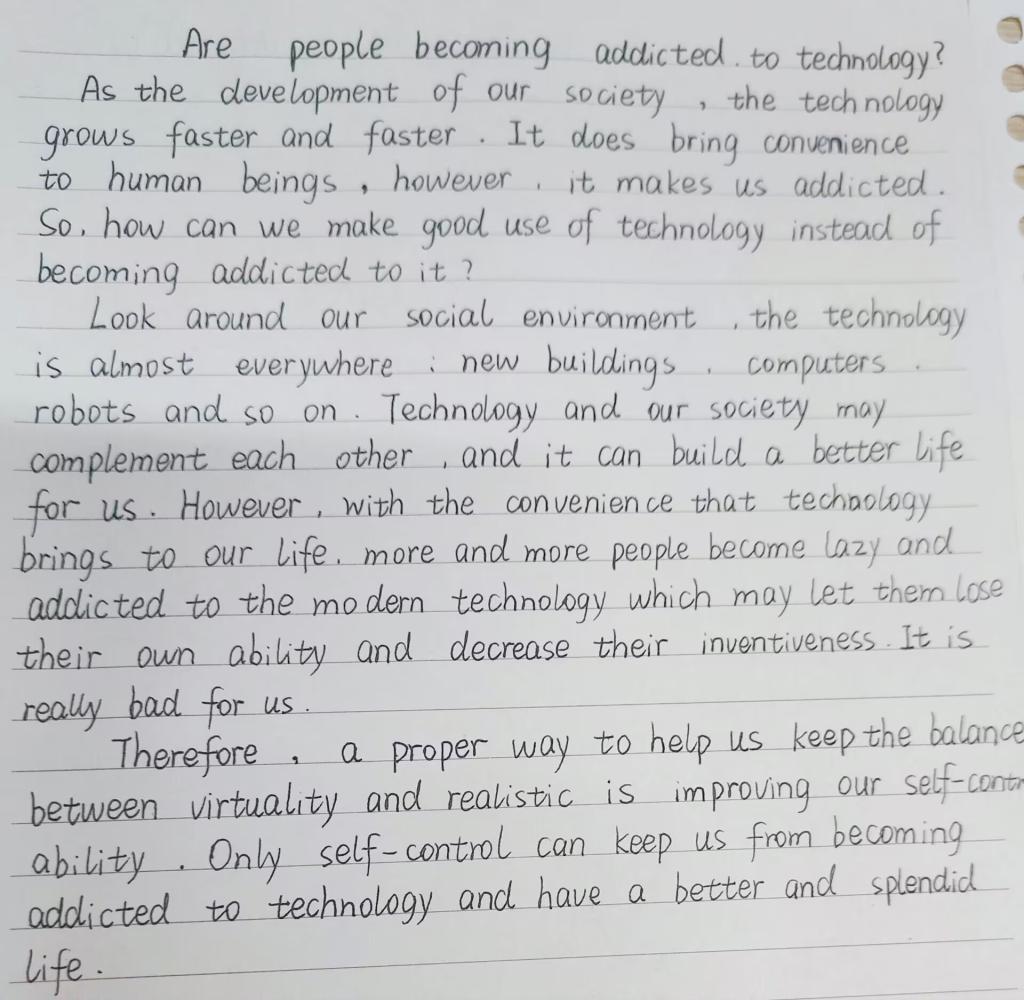 Are people becoming addicted to technology?
As the development of our society, the technology
grows faster and faster. It does bring convenience
to human beings, however, it makes us addicted.
So, how can we make good use of technology instead of
becoming addicted to it?
Look around our social environment, the technology
is almost everywhere: new buildings, computers,
robots and so on. Technology and our society may
complement each other, and it can build a better life
for us. However, with the convenience that technology
brings to our life, more and more people become lazy and
addicted to the modern technology which may let them lose
their own ability and decrease their inventiveness. It is
really bad for us.
Therefore, a proper way to help us keep the balance
between virtuality and realistic is improving our self-contr
ability. Only self-control can keep us from becoming
addicted to technology and have a better and splendid
life.